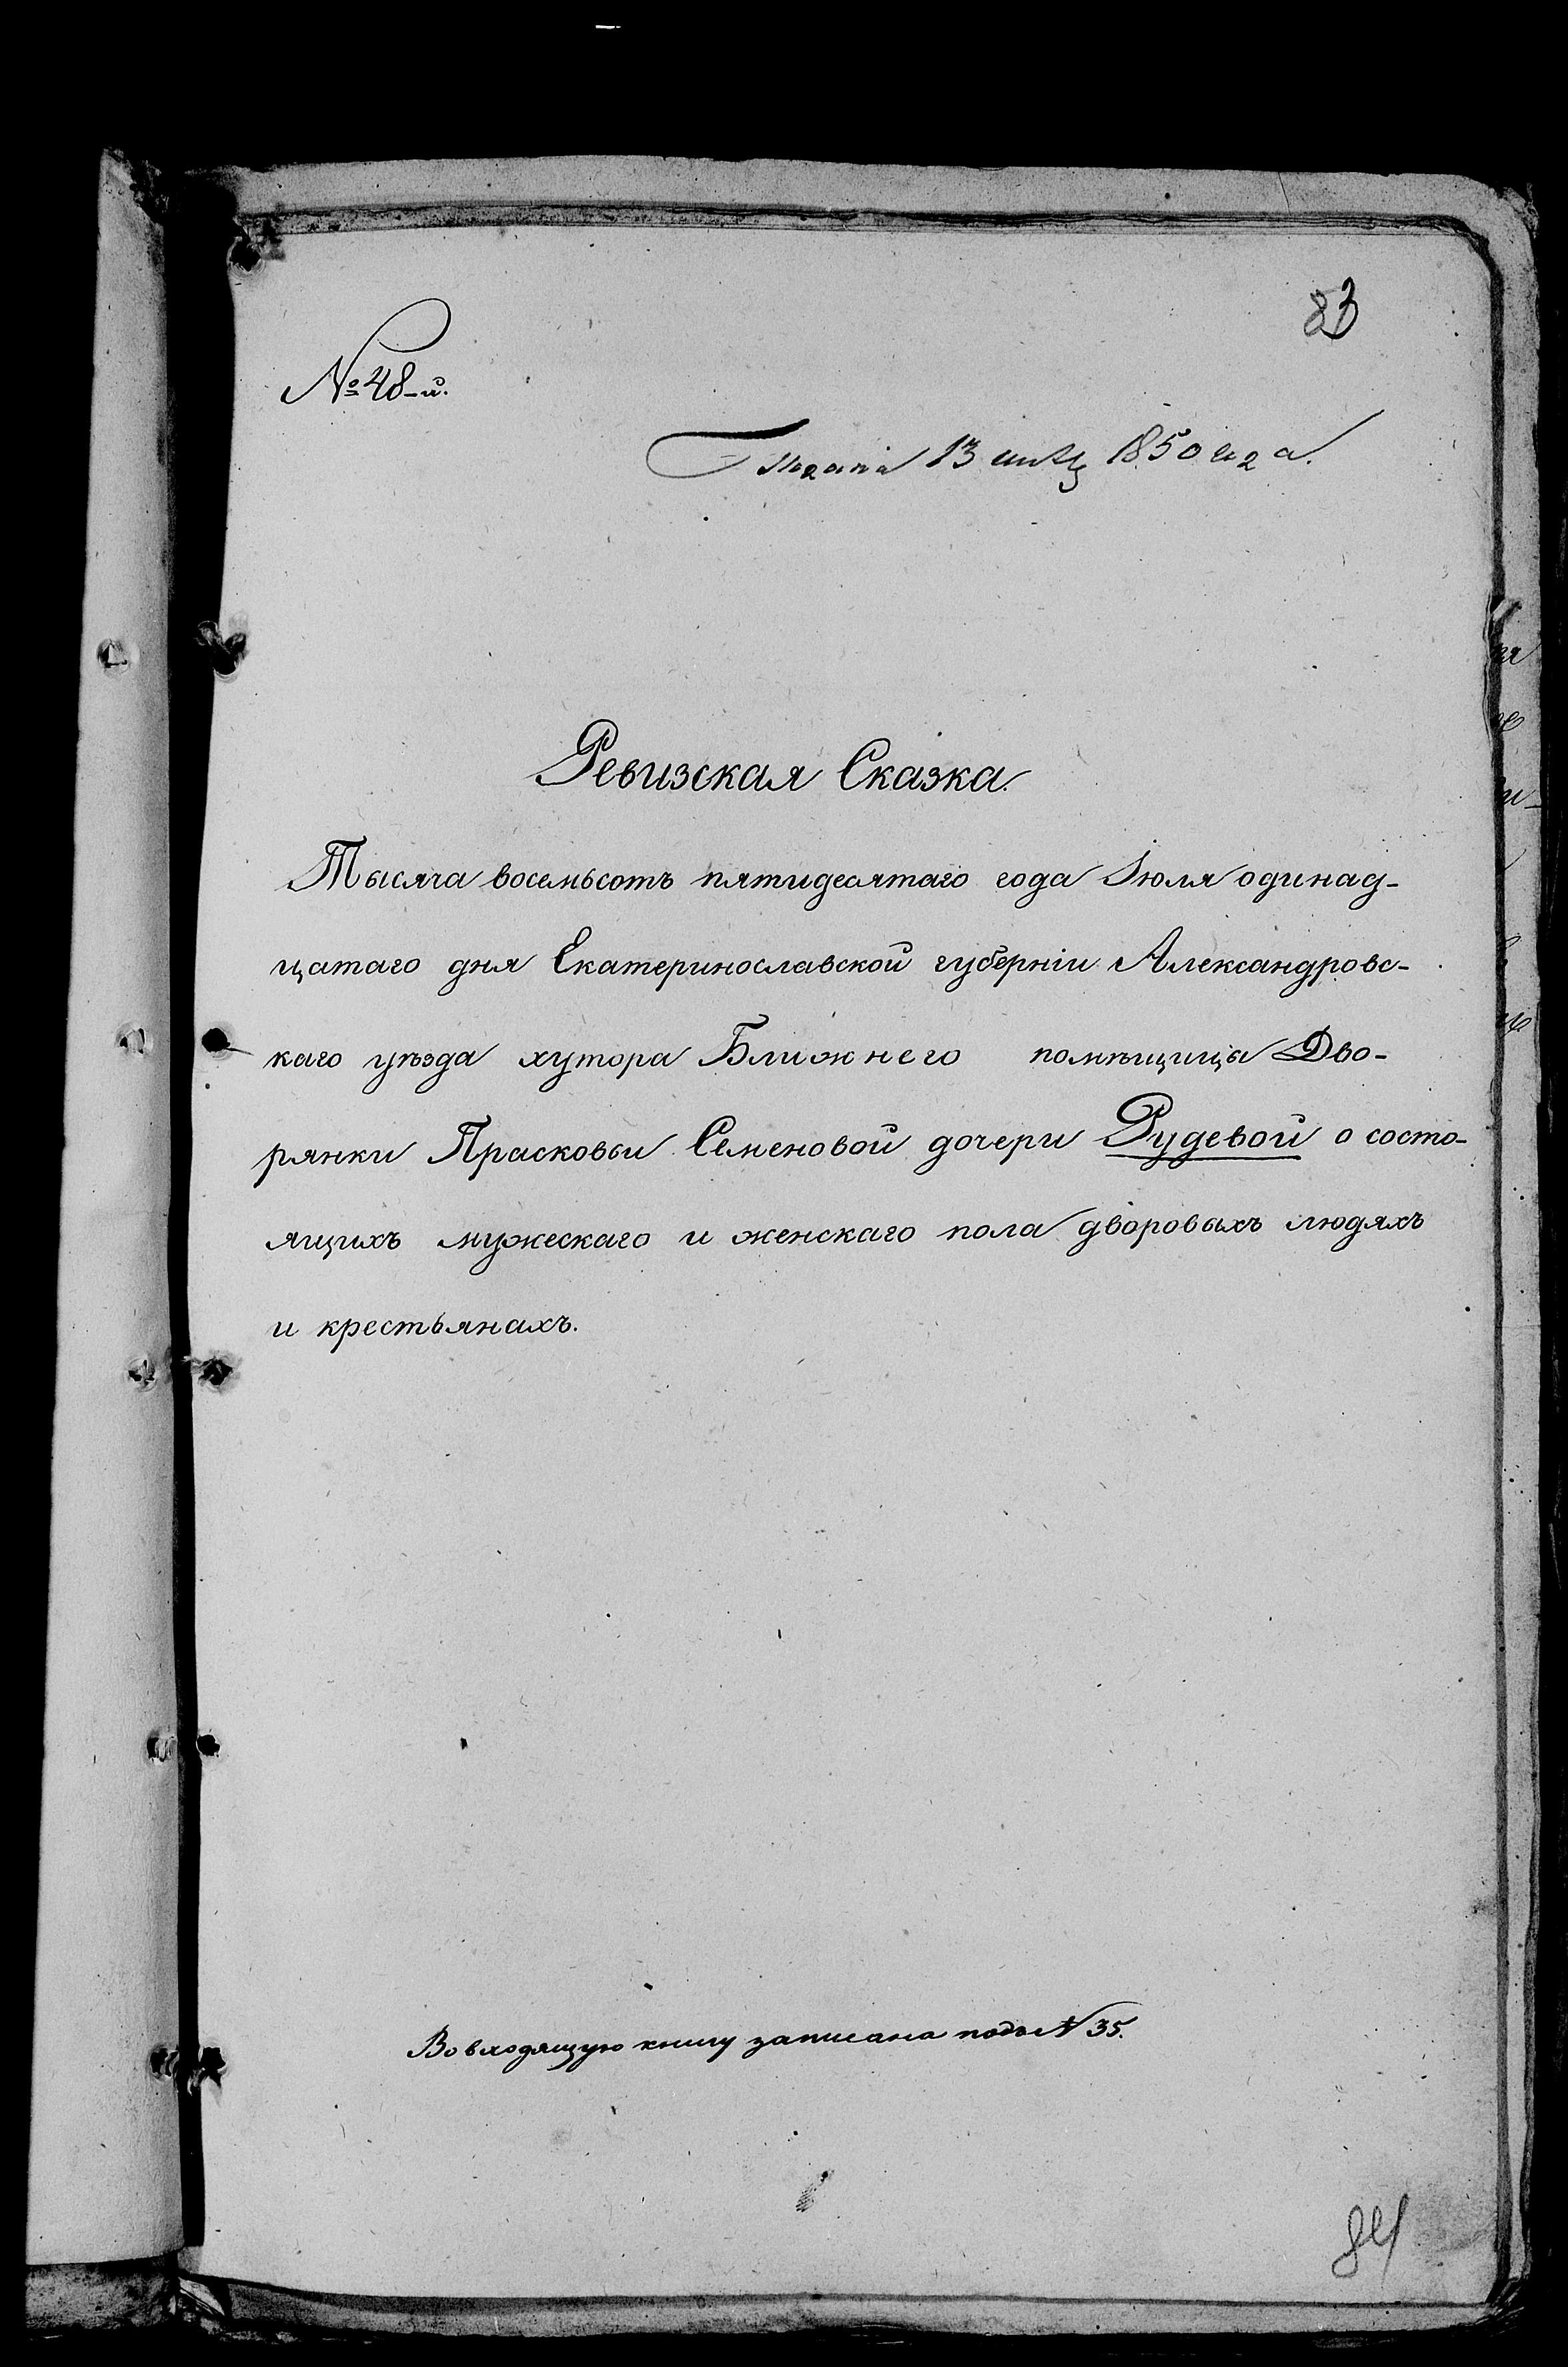 83
№ 48-й.
Подана 13 июля 1850 года.
Ревизская Сказка.
Тысяча восемьсотъ пятидесятаго года Іюля одинад-
цатаго дня Екатеринославской губерніи Александровс-
каго уѣзда хутора Ближнего помѣщицы Дво-
рянки Прасковьи Семеновой дочери Рудевой о состо-
ящихъ мужескаго и женскаго пола дворовыхъ людяхъ
и крестьянахъ.
Во входящую книгу записана подъ № 35.
84